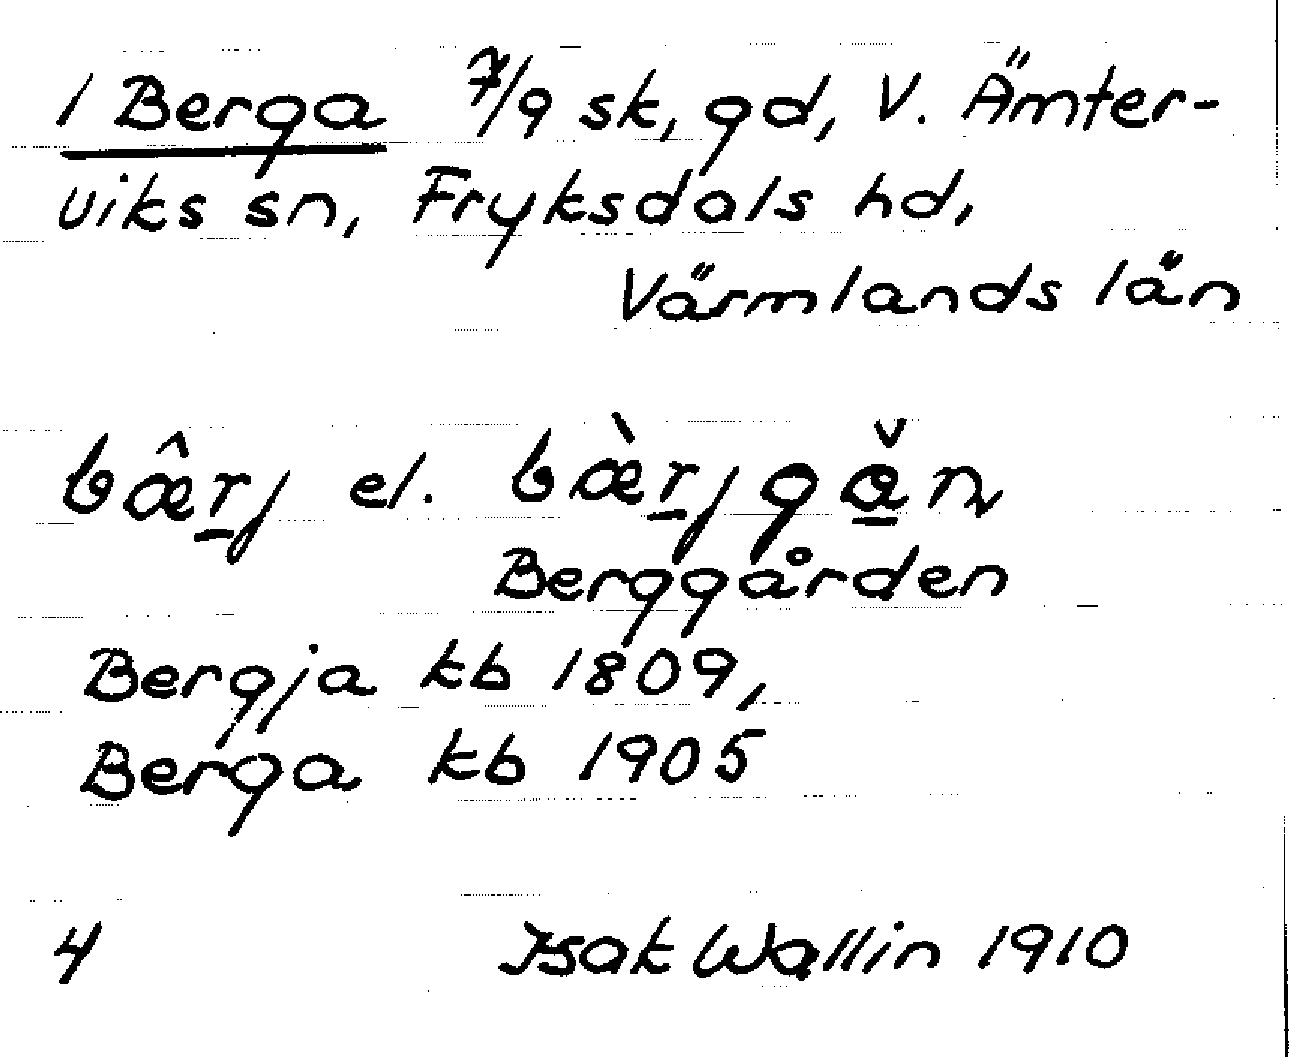 1 Berga 7/9 sk, gd, V. Ämter-
viks sn, Fryksdals hd,
Värmlands län
bæ̂r̠j el. bæ̀r̠jgå̠̌n
Berggården
Bergja kb 1809,
Berga kb 1905
4 Isak Wallin 1910